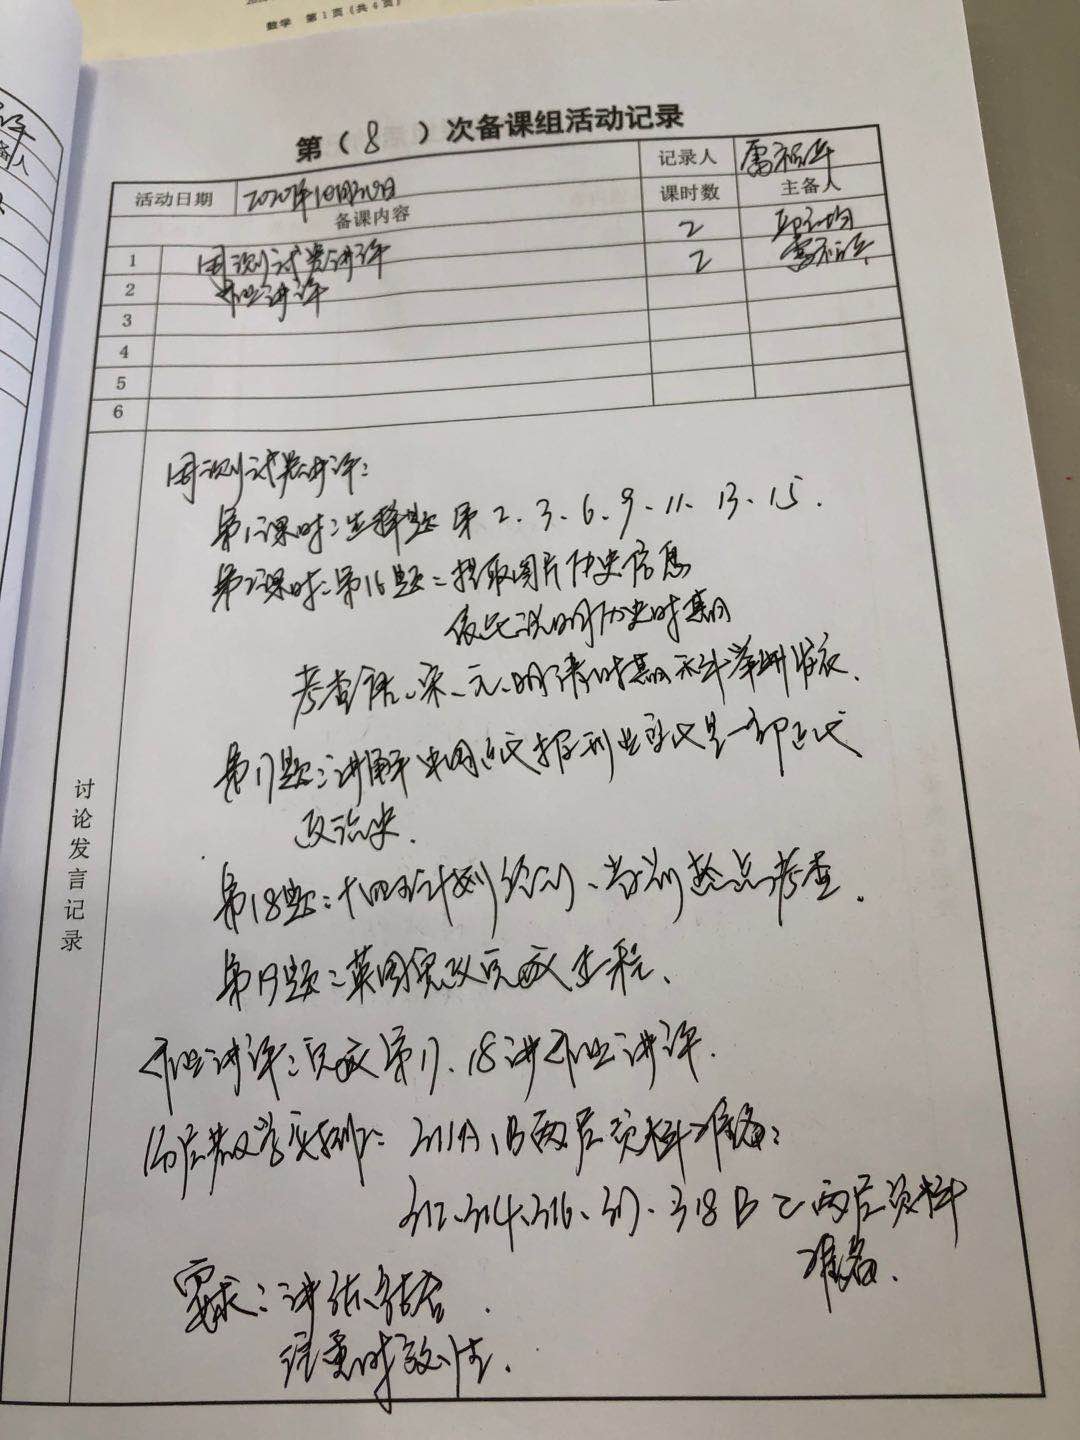 数学 第1页(共6页)
备人
第(8)次备课组活动记录
活动日期 2020年10月29日 记录人
备课内容 课时数 主备人
1 周测试卷讲评 2
2 作业讲评 2
3
4
5
6
讨论发言记录
周测试卷讲评:
第1课时:选择题 第2、3、6、9、11、13、15.
第2课时:第16题:提取图片历史信息
依此说明历史时期
考查唐、宋、元、明清时期科举制发展.
第17题:讲解中国近代报刊史实代是一部近代
政治史.
第18题:十四五计划
考查.
第19题:英国宪政完成工程.
作业讲评:完成第17、18讲作业讲评.
分层教学安排: 311A、B两层资料准备;
312、314、316、317、318 B C两层资料
准备.
要求:讲练结合.
注重时效性.